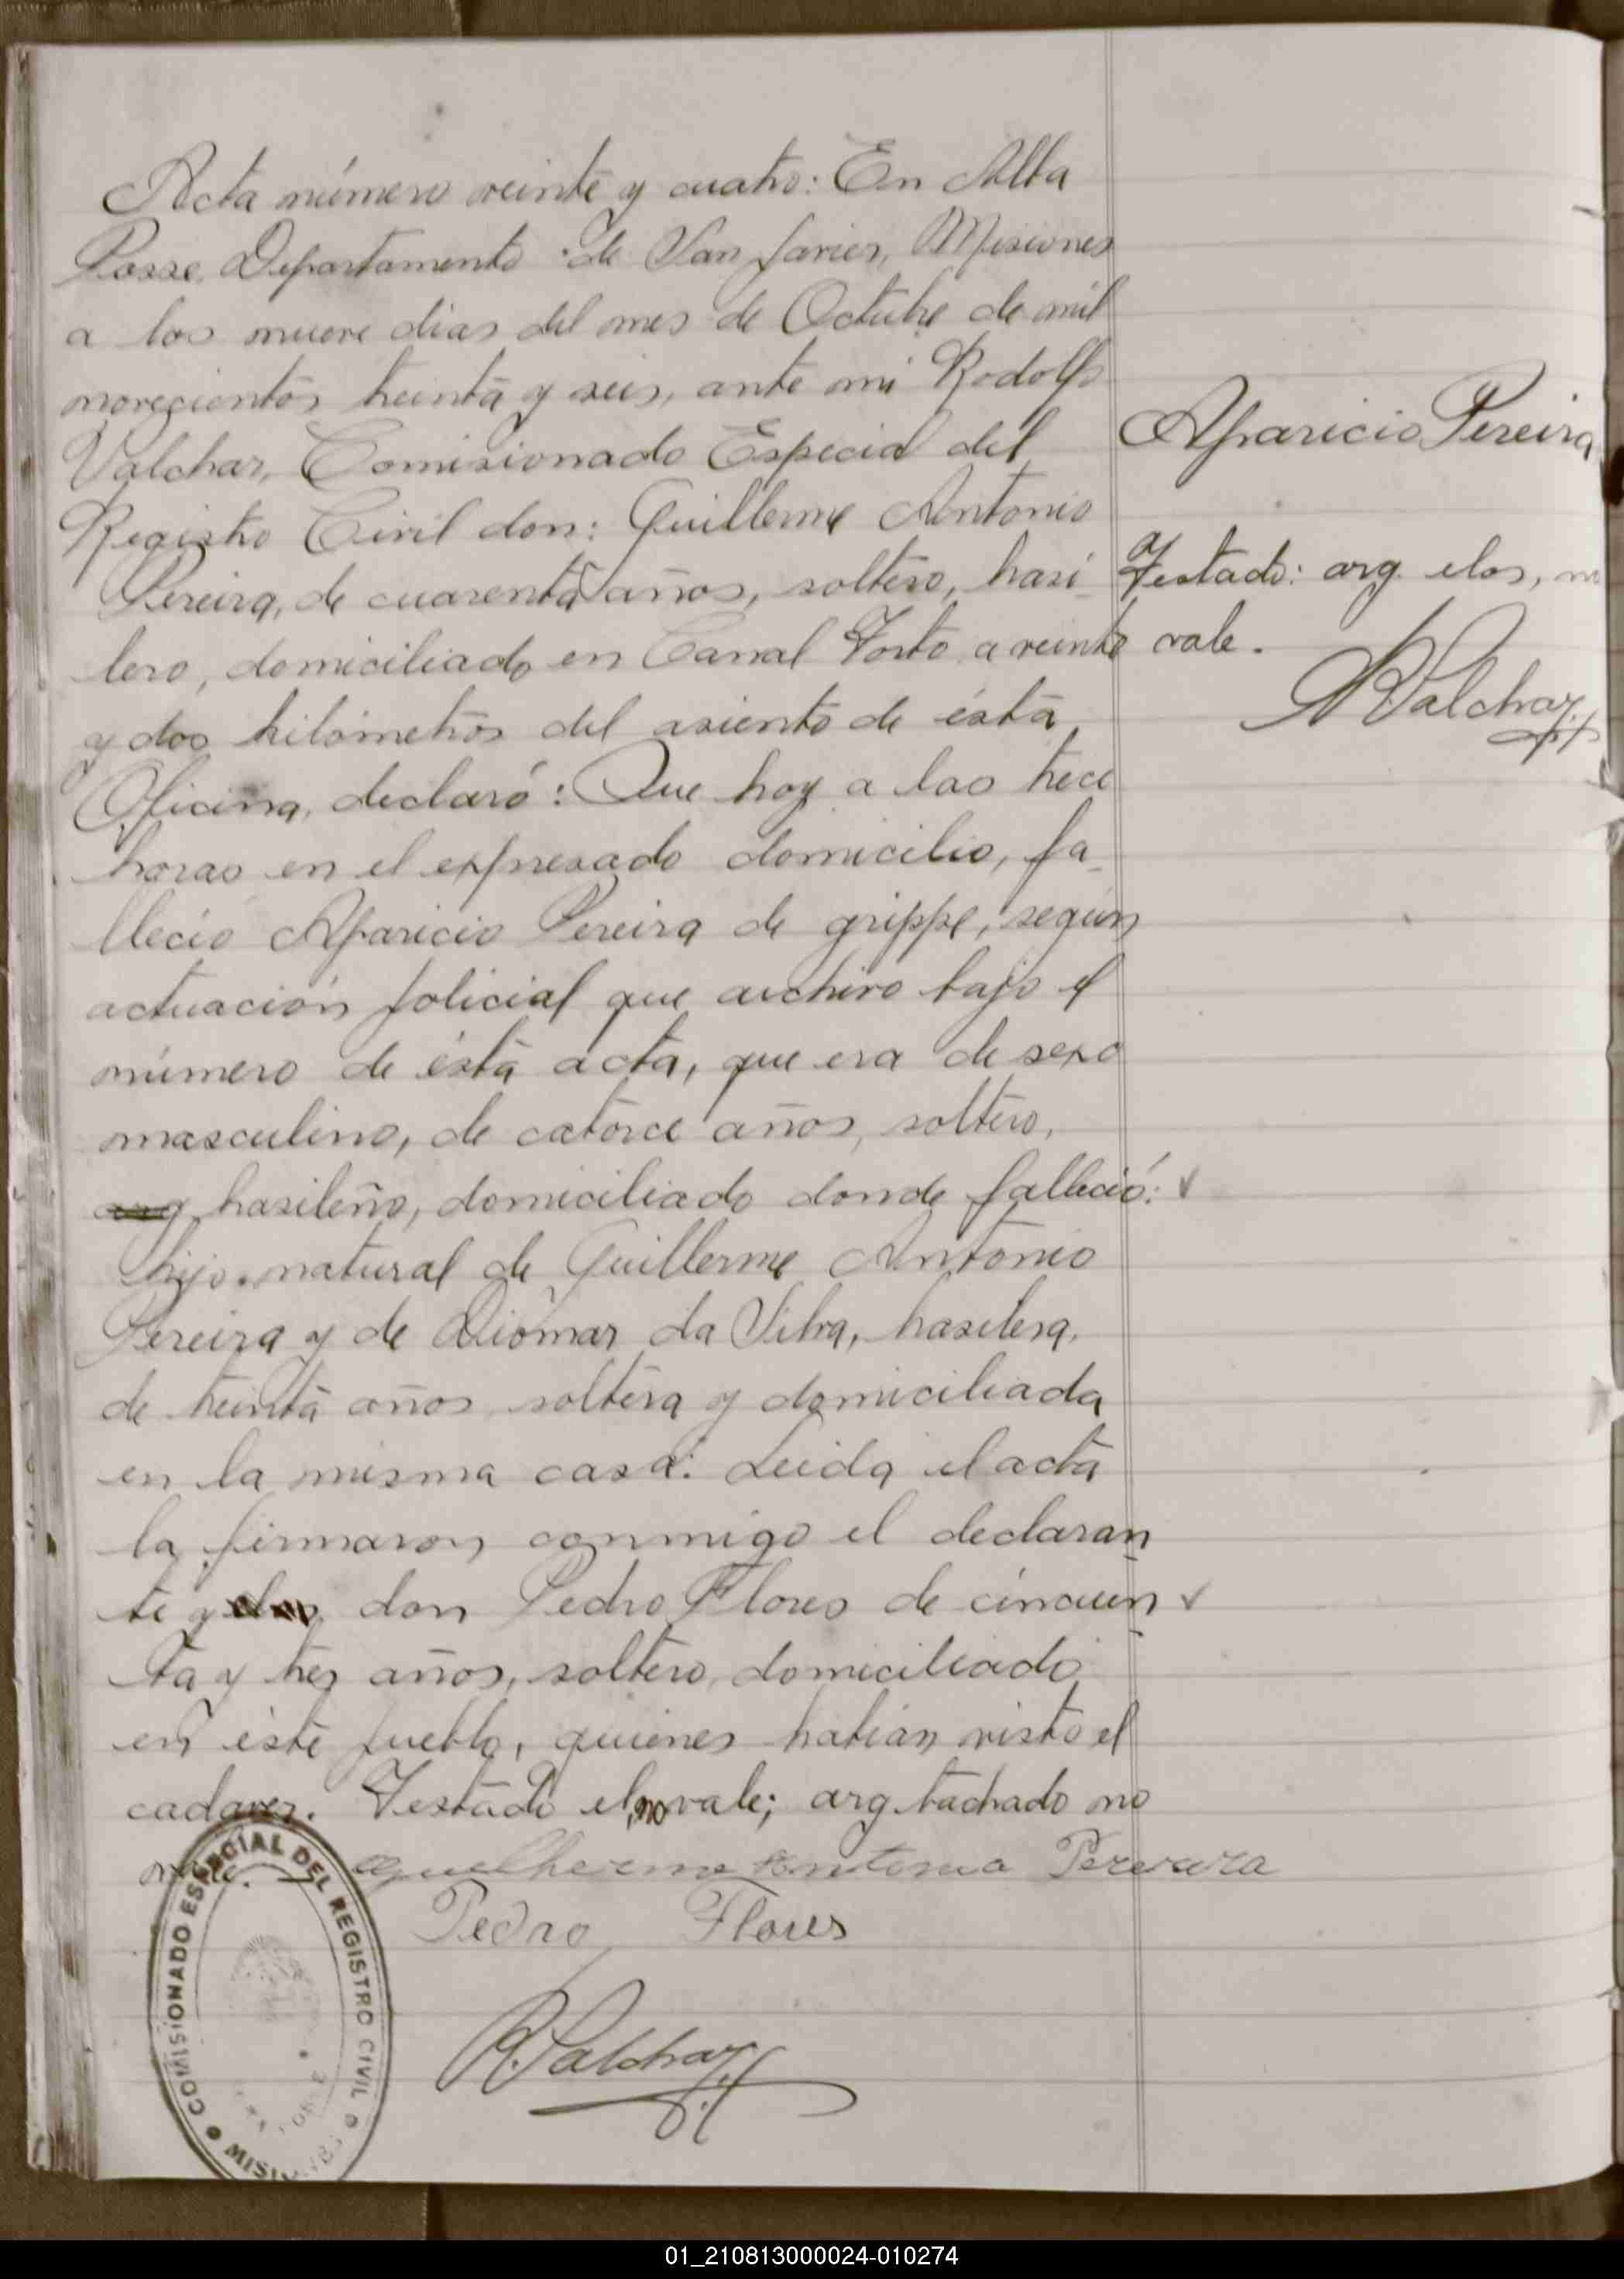 Acta número veinte y cuatro: En Alba
Posse, Departamento de San Javier, Misiones
a los nueve dias del mes de Octubre de mil
novecientos treinta y seis, ante mi Rodolfo
Valchar, Comisionado Especial del
Registro Civil don: Guillerme Antonio
Pereira, de cuarenta años, soltero, brasi-
lero, domiciliado en Canal Torto a veinte
y dos kilómetros del asiento de ésta
Oficina, declaró: Que hoy a las trece
horas en el expresado domicilio, fa-
lleció Aparicio Pereira de grippe, según
actuación policial que archivo bajo el
número de ésta acta, que era de sexo
masculino, de catorce años, soltero,
arg brasileño, domiciliado donde falleció:
hijo natural de Guillerme Antonio
Pereira y de Diomar da Silva, brasilera,
de treinta años, soltera y domiciliada
en la misma casa: Leida el acta
la firmaron conmigo el declaran
te y don Pedro Flores de cincuen
ta y tres años, soltero, domiciliado
en éste pueblo, quienes habian visto el
cadaver. Testado el, no vale; arg. tachado no
vale.
Guelherme Antonio Pereira
Pedro Flores
R. Valchar
Aparicio Pereira
Testado: arg. elos, no
vale.
R Valchar
COMISIONADO ESPECIAL DEL REGISTRO CIVIL
MISIONES
01_210813000024-010274